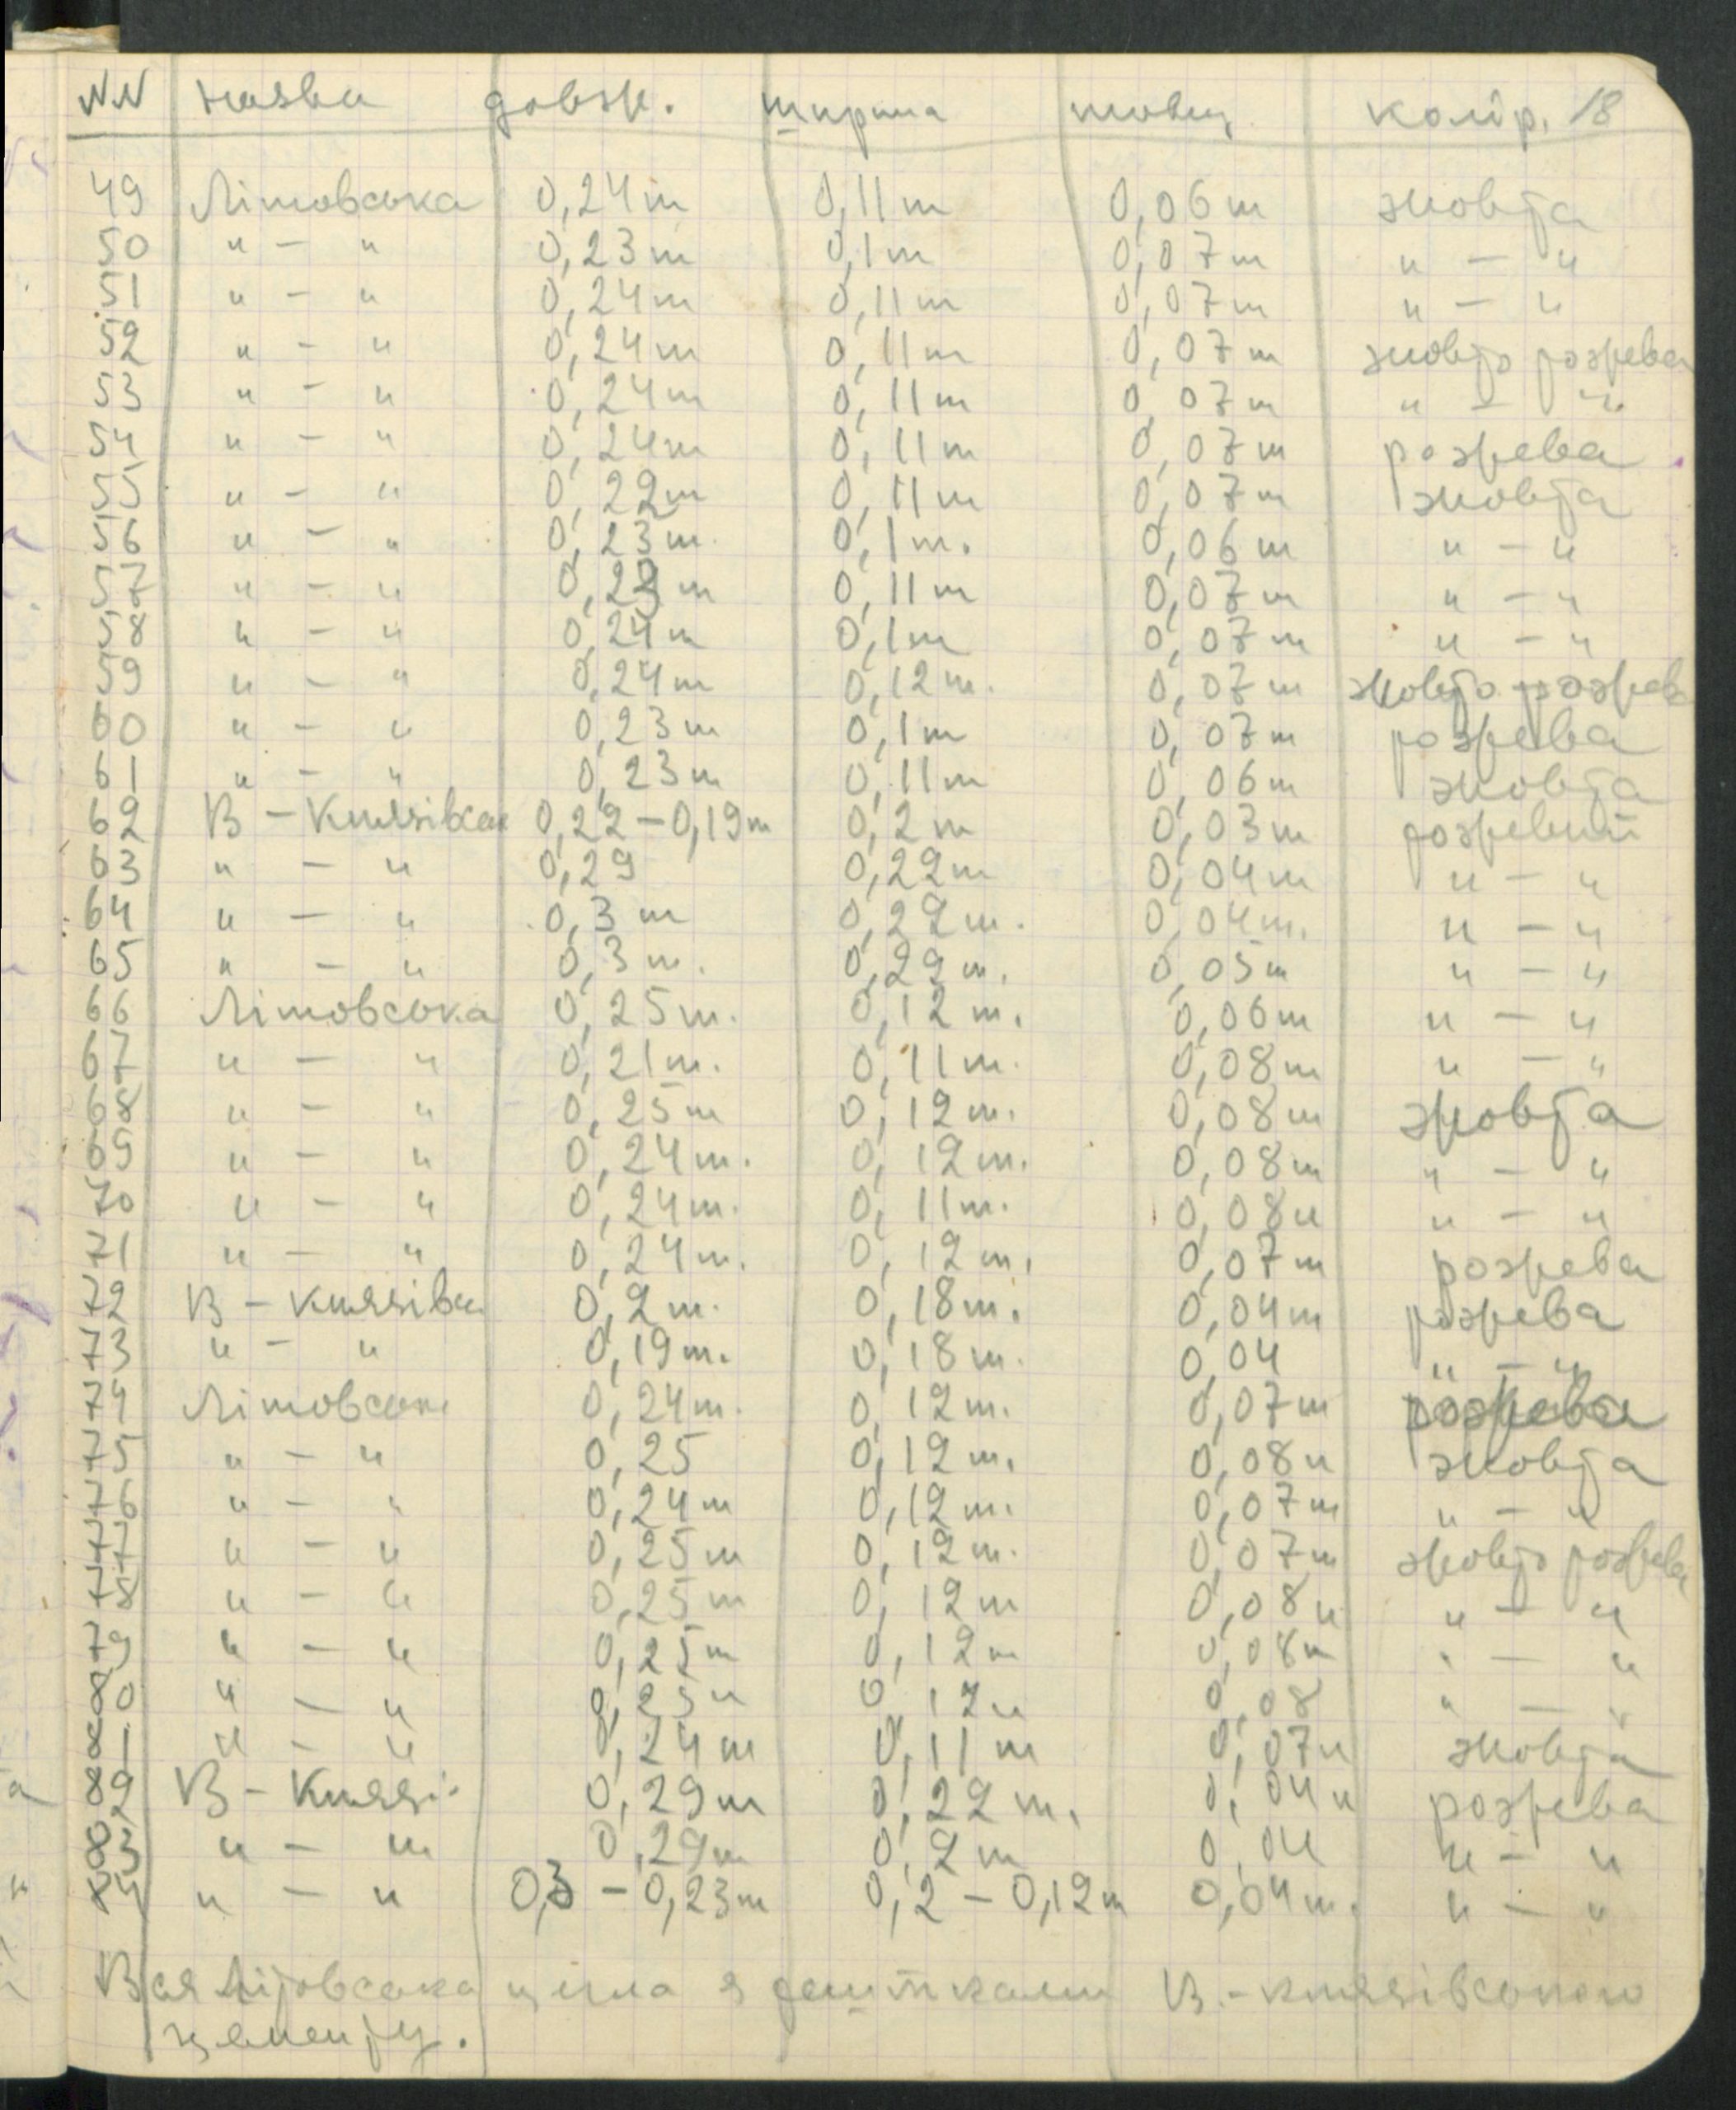 NN назва довж. ширина товщ. колір. 18
49 Літовська 0,24 m 0,11 m 0,06 m жовта
50 " – " 0,23 m 0,1 m 0,07 m " – "
51 " – " 0,24 m 0,11 m 0,07 m " – "
52 " – " 0,24 m 0,11 m 0,07 m жовто рожева
53 " – " 0,24 m 0,11 m 0,07 m " – "
54 " – " 0,24 m 0,11 m 0,07 m рожева
55 " – " 0,22 m 0,11 m 0,07 m жовта
56 " – " 0,23 m. 0,1 m. 0,06 m " – "
57 " – " 0,23 m 0,11 m 0,07 m " – "
58 " – " 0,24 m 0,1 m 0,07 m " – "
59 " – " 0,24 m 0,12 m. 0,07 m жовто-рожева
60 " – " 0,23 m 0,1 m 0,07 m рожева
61 " – " 0,23 m 0,11 m 0,06 m жовта
62 В – Князівська 0,22 – 0,19 m 0,2 m 0,03 m рожевий
63 " – " 0,29 0,22 m 0,04 m " – "
64 " – " 0,3 m 0,22 m. 0,04 m. " – "
65 " – " 0,3 m. 0,22 m. 0,05 m " – "
66 Літовська 0,25 m. 0,12 m. 0,06 m " – "
67 " – " 0,21 m. 0,11 m. 0,08 m " – "
68 " – " 0,25 m 0,12 m. 0,08 m жовта
69 " – " 0,24 m. 0,12 m. 0,08 m " – "
70 " – " 0,24 m. 0,11 m. 0,08 m " – "
71 " – " 0,24 m. 0,12 m. 0,07 m рожева
72 В – Князівсь 0,2 m. 0,18 m. 0,04 m рожева
73 " – " 0,19 m. 0,18 m. 0,04 " – "
74 Літовська 0,24 m. 0,12 m. 0,07 m рожева
75 " – " 0,25 0,12 m. 0,08 m жовта
76 " – " 0,24 m 0,12 m. 0,07 m " – "
77 " – " 0,25 m 0,12 m. 0,07 m жовто рожева
78 " – " 0,25 m 0,12 m 0,08 m " – "
79 " – " 0,25 m 0,12 m 0,08 m " – "
80 " – " 0,25 m 0,12 m 0,08 " – "
81 " – " 0,24 m 0,11 m 0,07 m жовта
82 В – Князі 0,29 m 0,22 m. 0,04 m рожева
83 " – " 0,29 m 0,2 m 0,04 " – "
84 " – " 0,3 – 0,23 m 0,2 – 0,12 m 0,04 m. " – "
Вся Літовська цегла з рештками В.-князівського
цементу.